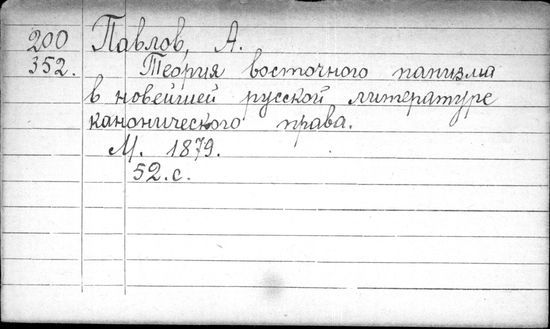 200 Павлов, А.
352. Теория восточного папизма
в новейшей русской литературе
канонического права.
М. 1879.
52.с.